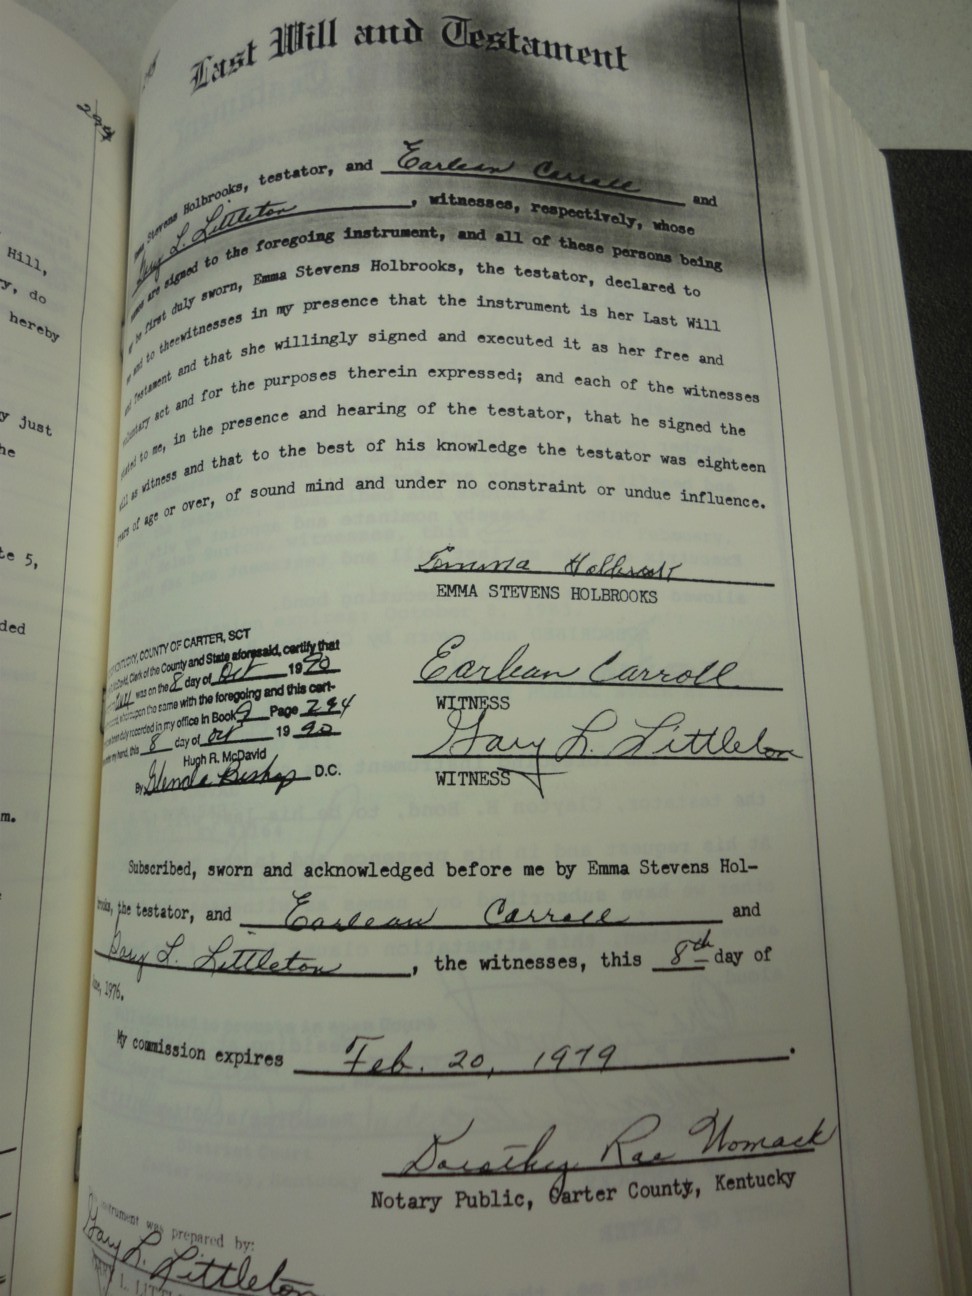 294
Last Will and Testament
Stevens Holbrooks, testator, and Earlean Carroll and
Gary L. Littleton, witnesses, respectively, whose
are signed to the foregoing instrument, and all of these persons being
first duly sworn, Emma Stevens Holbrooks, the testator, declared to
and to theewitnesses in my presence that the instrument is her Last Will
Testament and that she willingly signed and executed it as her free and
act and for the purposes therein expressed; and each of the witnesses
to me, in the presence and hearing of the testator, that he signed the
as witness and that to the best of his knowledge the testator was eighteen
of age or over, of sound mind and under no constraint or undue influence.
Emma Holbrook
EMMA STEVENS HOLBROOKS
COUNTY OF CARTER, SCT
Clerk of the County and State aforesaid, certify that
was on the 8 day of Oct 1990
the same with the foregoing and this cert-
duly recorded in my office in Book 9 Page 294
hand, this 8 day of Oct 19 90
Hugh R. McDavid
By Glenda Bishop D.C.
Earlean Carroll
WITNESS
Gary L. Littleton
WITNESS
Subscribed, sworn and acknowledged before me by Emma Stevens Hol-
the testator, and Earlean Carroll and
Gary L. Littleton, the witnesses, this 8th day of
1976.
My commission expires Feb. 20, 1979.
Dorothy Rae Womack
Notary Public, Carter County, Kentucky
was prepared by:
Gary L. Littleton
Hill,
do
hereby
just
5,